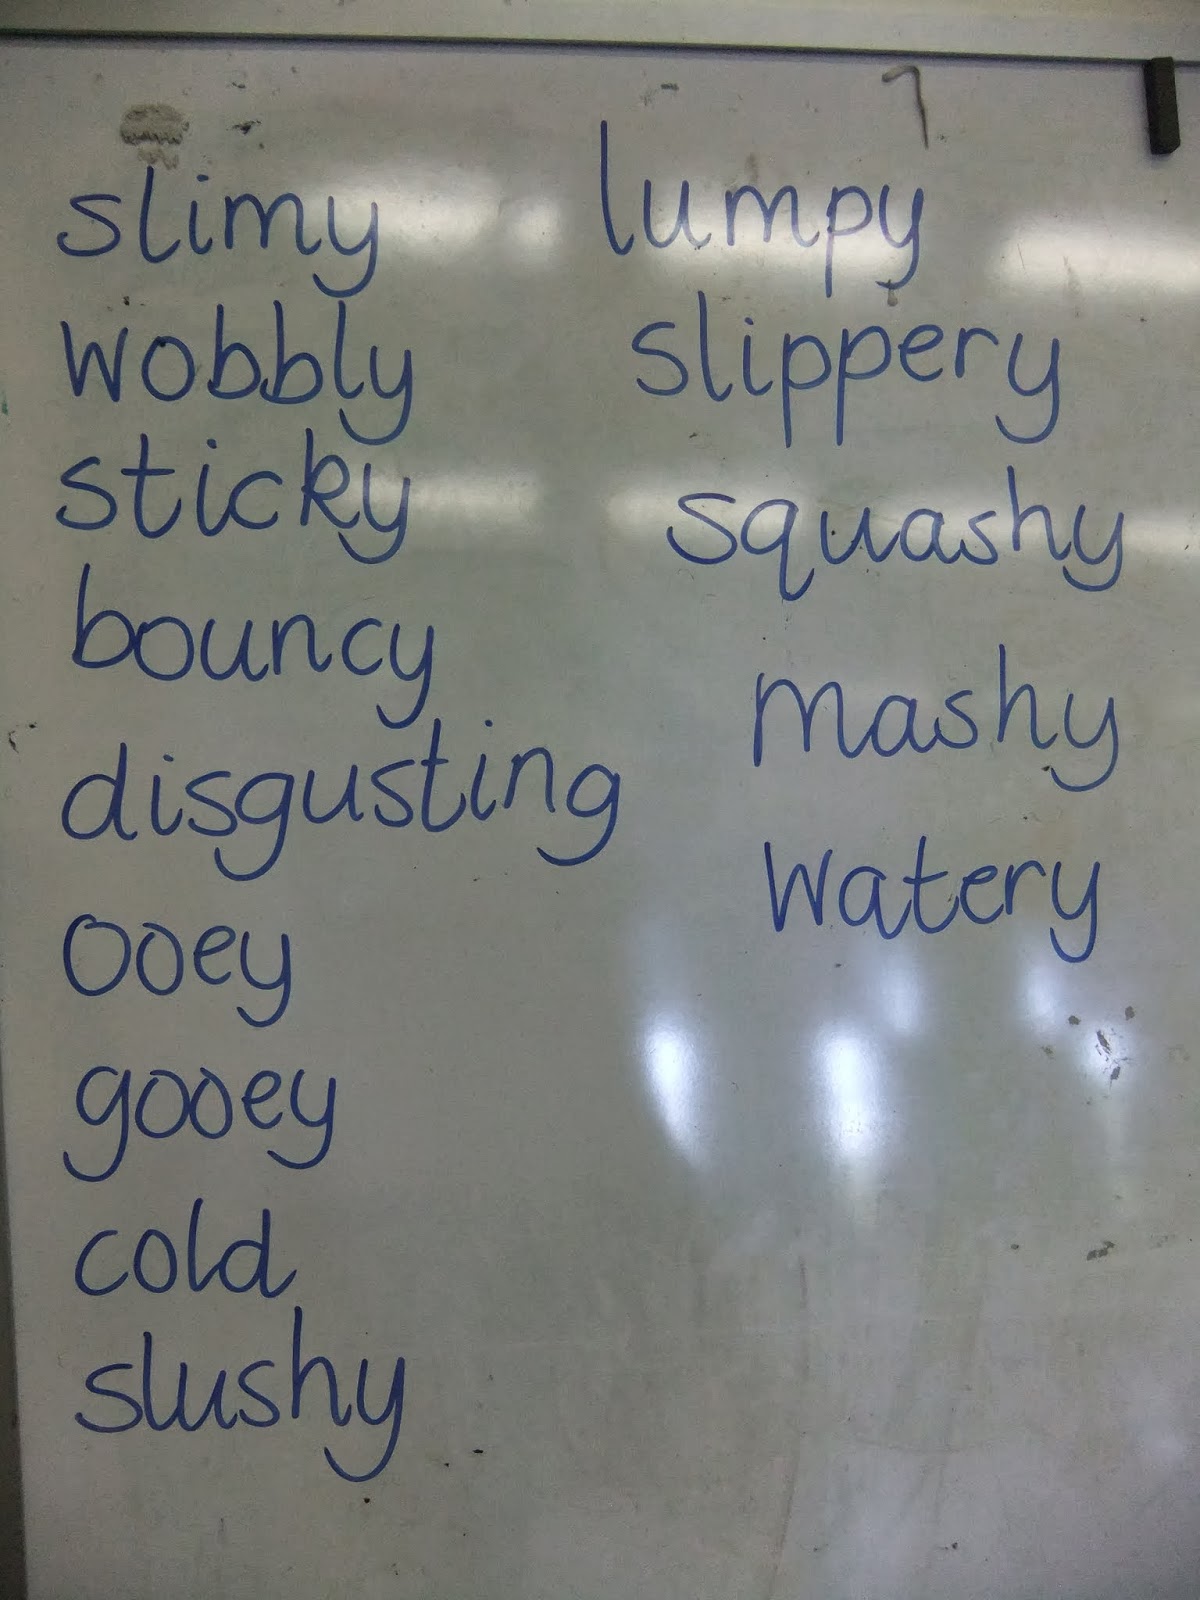 slimy
wobbly
sticky
bouncy
disgusting
ooey
gooey
cold
slushy
lumpy
slippery
squashy
mashy
watery